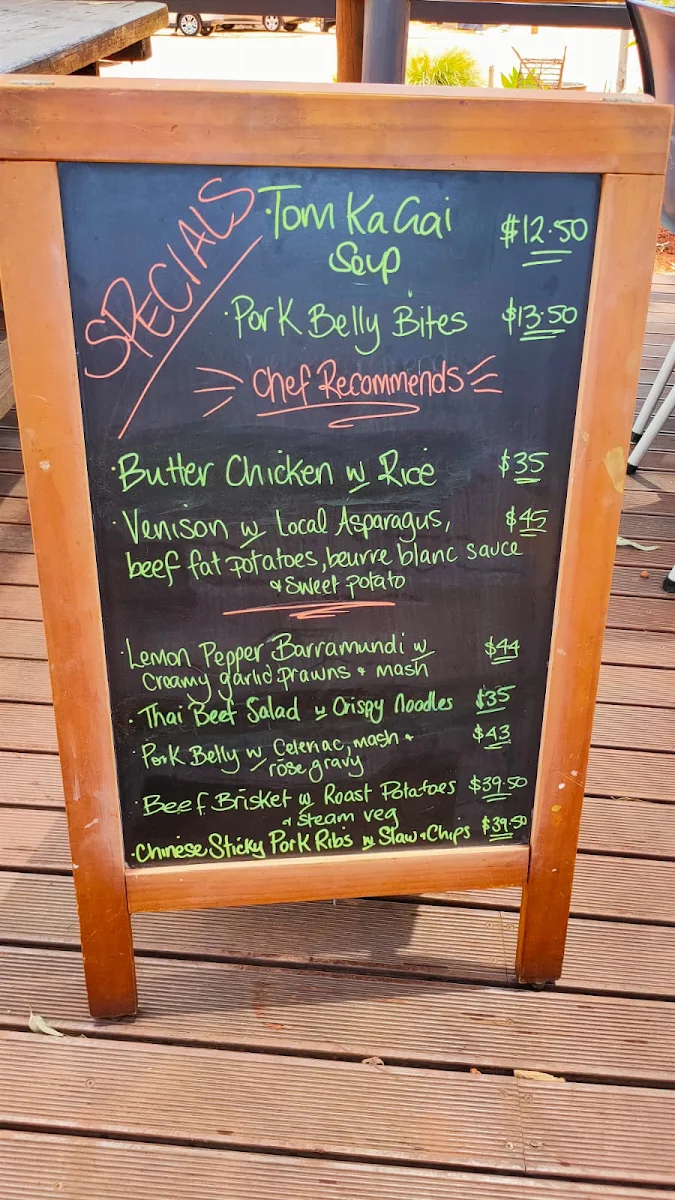 SPECIALS
·Tom Ka Gai $12.50
Soup
·Pork Belly Bites $13.50
Chef Recommends
·Butter Chicken w Rice $35
·Venison w Local Asparagus, $45
beef fat potatoes, beurre blanc sauce
& Sweet potato
·Lemon Pepper Barramundi w $44
Creamy garlic prawns & mash
·Thai Beef Salad w Crispy Noodles $35
·Pork Belly w Celeriac, mash & $43
rose gravy
·Beef Brisket w Roast Potatoes $39.50
& steam veg
·Chinese Sticky Pork Ribs w Slaw & Chips $39.50